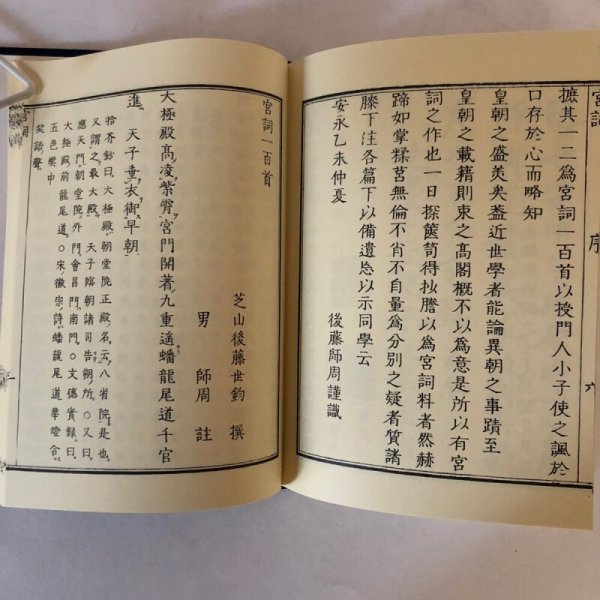 宮詞
序
六
摭其一二為宮詞一百首以授門人小子使之諷於
口存於心而略知
皇朝之盛羙矣葢近世學者能論異朝之事蹟至
皇朝之載籍則束之髙閣概不以為意是所以有宮
詞之作也一日探篋笥得抄謄以為宮詞料者然赫
蹄如掌糅莒無倫不肖不自量為分別之疑者質諸
滕下注各篇下以備遺忘以示同學云
安永乙未仲夏
後藤師周謹識
宮詞一百首
芝山後藤世鈞 撰
男 師周 註
大極殿髙凌紫霄宮門開著九重遥蟠龍尾道千官
進 天子垂衣御早朝
拾芥鈔曰大極殿朝堂院正殿名云八省院是也
又謂之最大殿 天子臨朝諸司告朔所○又曰
應天門朝堂院外門會昌門南門○文德實録曰
大極殿前龍尾道○宋徽宗詩蟠龍尾道華燈合
五色雲中
笑語聲